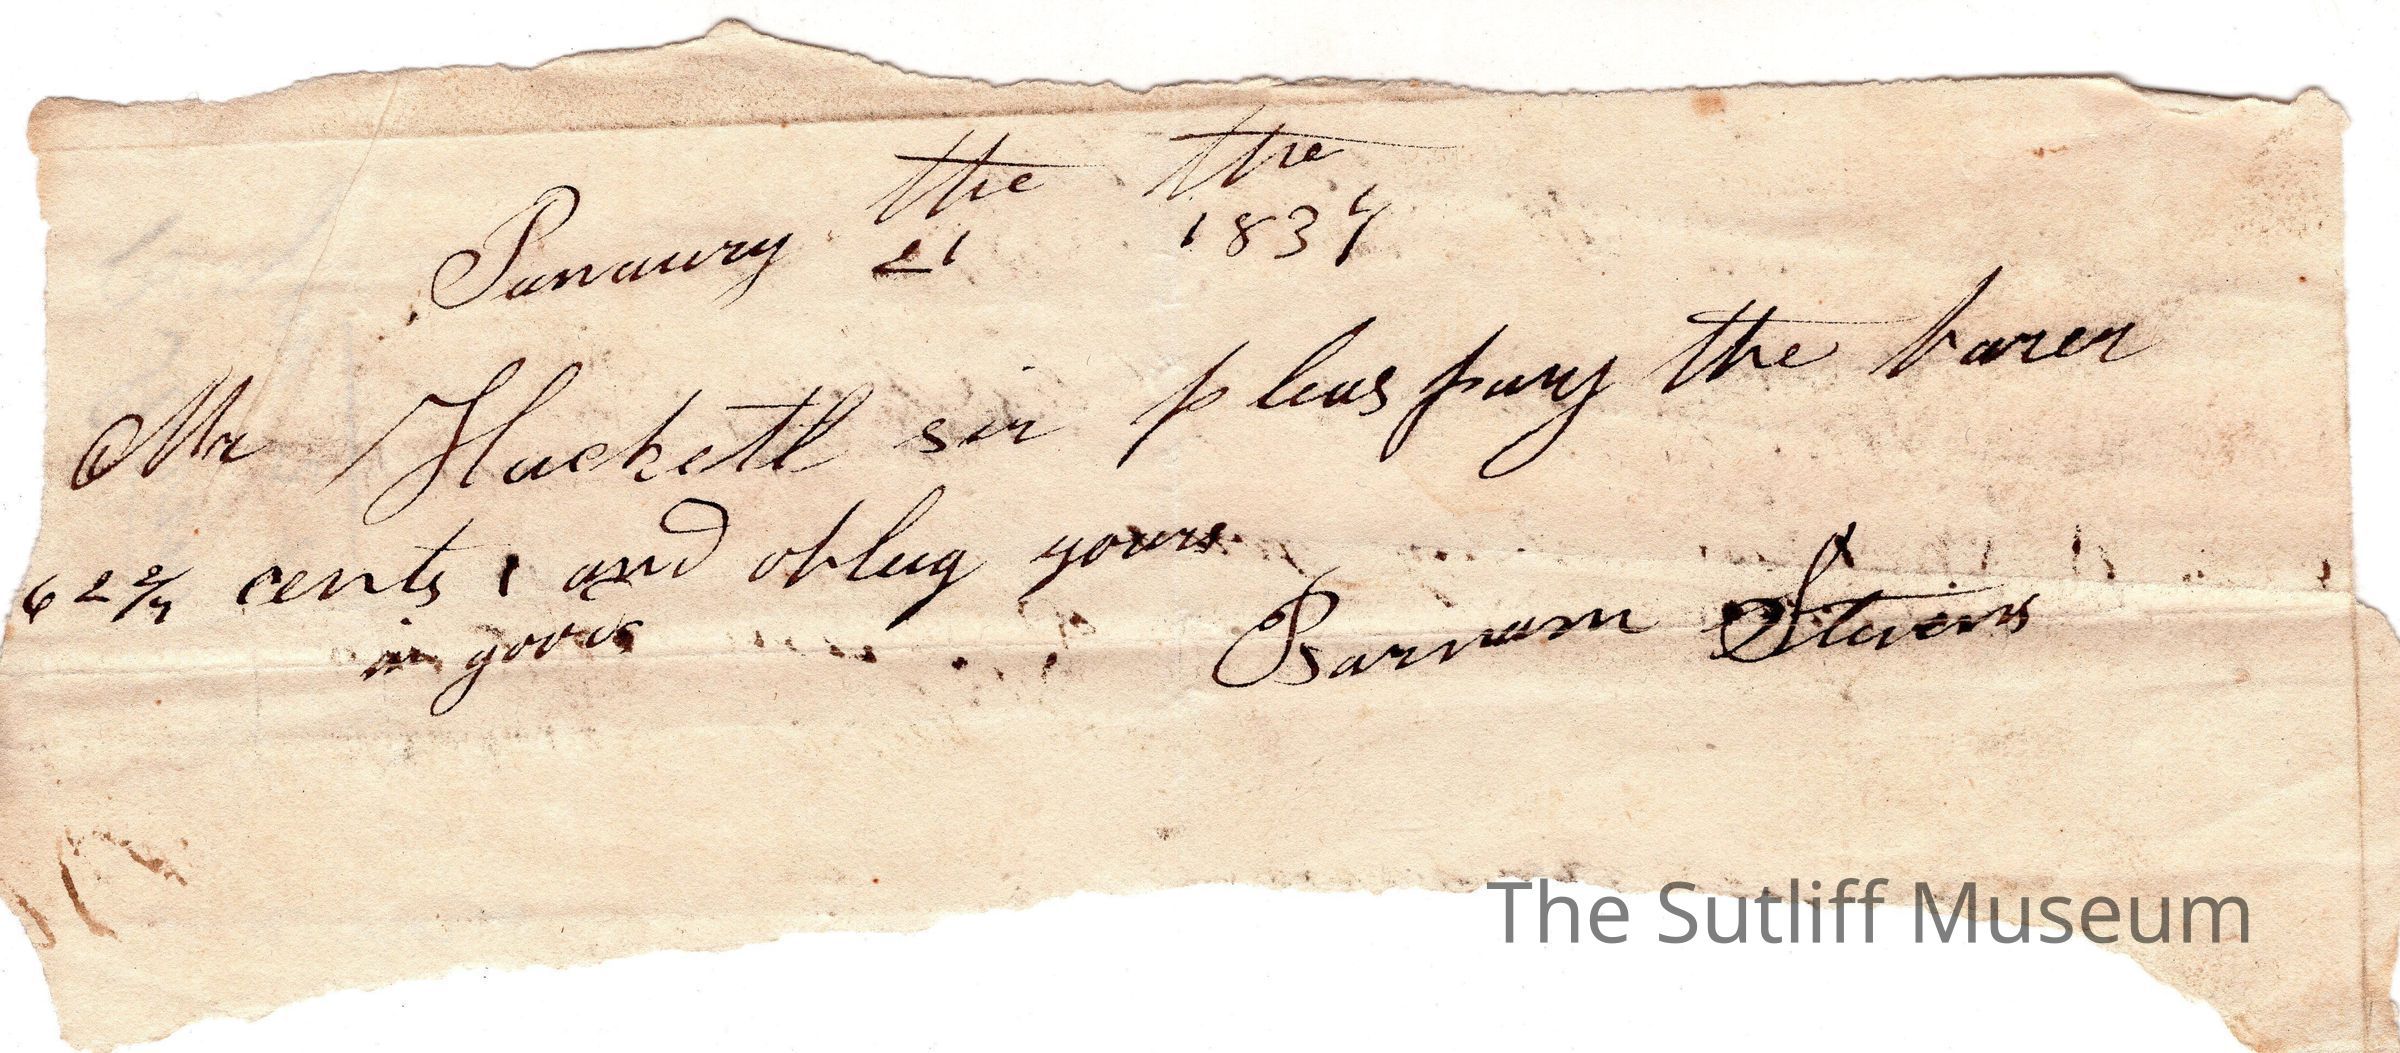 the the
Januury 21 1834
Mr Hackett sir pleas pay the barer
62 2/4 cents and obleig yours
in goods
Barnam Stevens
The Sutliff Museum